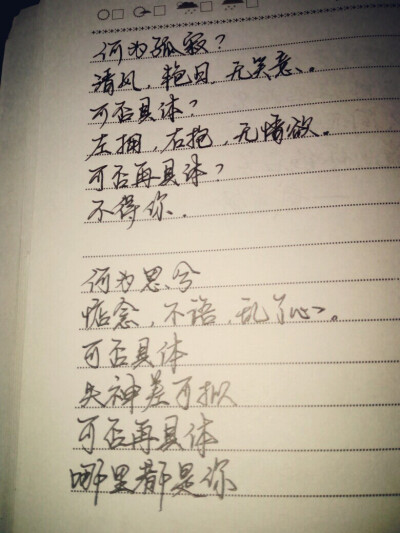 何为孤寂？
清风，艳日，无笑意。
可否具体？
左拥，右抱，无情欲。
可否再具体？
不得你．
何为思兮
惦念，不语，乱了心。
可否具体
失神差可拟
可否再具体
哪里都是你